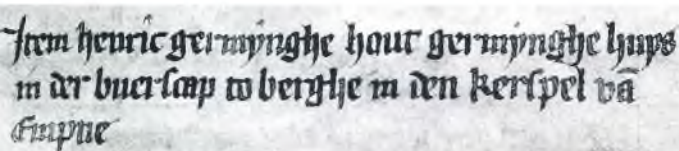 Item henric germÿnghe hout germÿnghe hups
in der buerscap to berghe in den kerspel vā
Empne